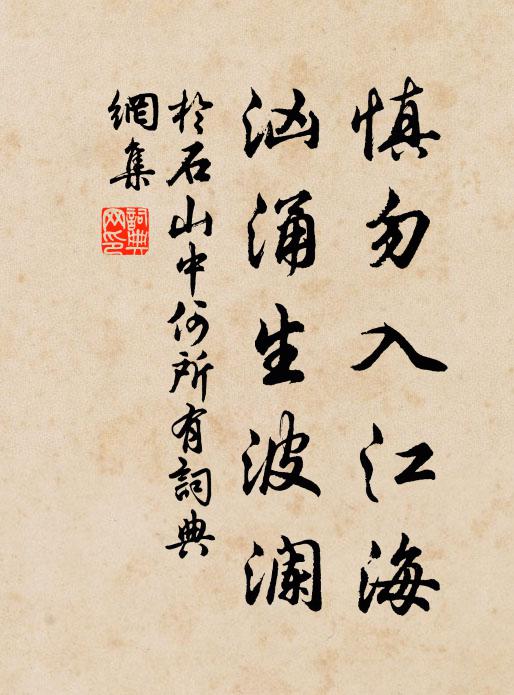 慎勿入江海
汹涌生波澜
於石山中何所有詞典
網集
詞典
网印